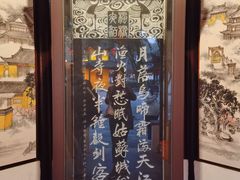 月落烏啼霜滿天江
漁火對愁眠姑蘇城
山寺夜半鐘聲到客